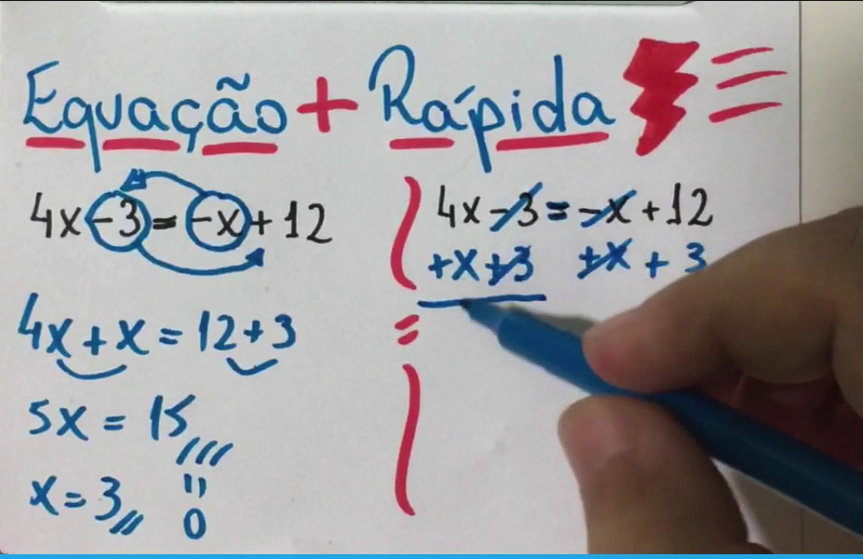 Equação + Rápida
4x - 3 = -x + 12
4x + x = 12 + 3
5x = 15
x = 3
0
4x - 3 = -x + 12
+x +3 +x + 3
=